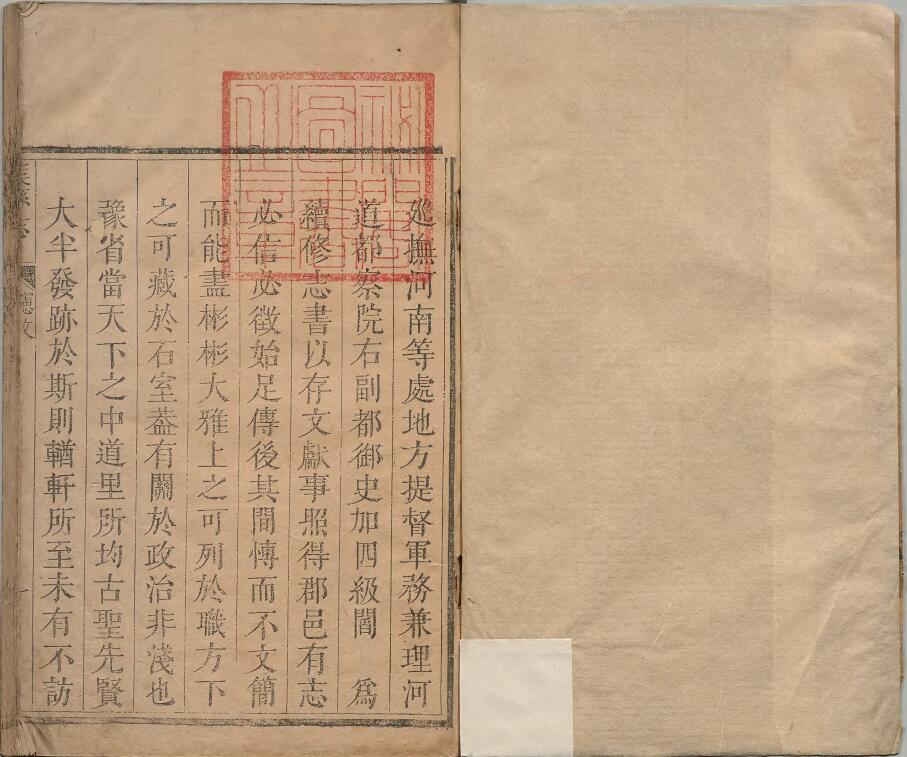 廵撫河南等處地方提督軍務兼理河
道都察院右副都御史加四級閻 爲
續修志書以存文獻事照得郡邑有志
必信必徵始足傳後其間慱而不文簡
而能盡彬彬大雅上之可列於職方下
之可藏於石室葢有關於政治非淺也
豫省當天下之中道里所均古聖先賢
大半發跡於斯則輶軒所至未有不訪
憲文
一